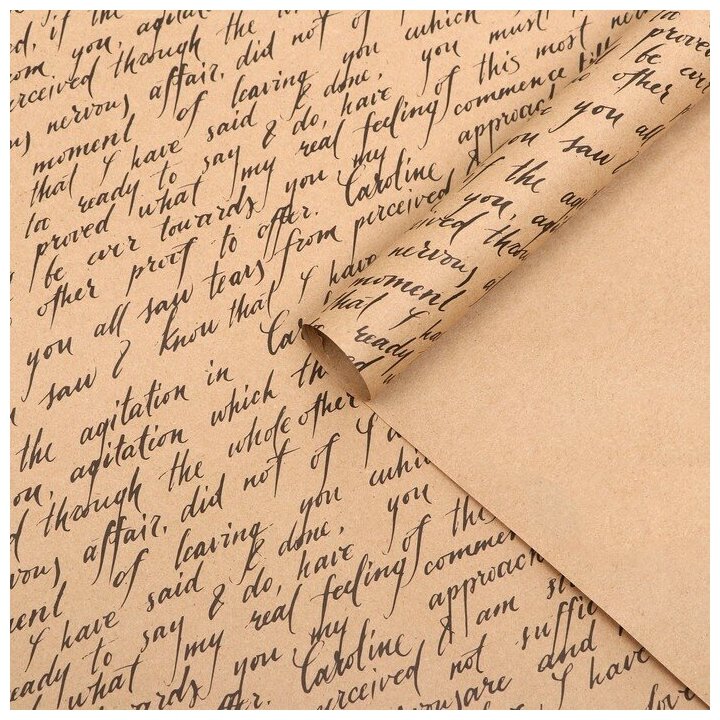 d, if the
om you, agitation which
erceived through the
nervous affair, did not of
moment of leaving you which
that I have said & done, you must
too ready to say & do, have you
proved what my real feeling of this most
be ever towards you my commence till
other proof to offer. Caroline approach
you all saw tears from perceived
saw & know that I have
the agitation in Ca
on, agitation which th
d through the whole other
affair, did not of I
of leaving you which
I have said & done, you
eady to say & do, have of the
what my real feeling commen
towards you my approach
offer. Caroline & am
perceived not suffic
are and
I have
love
proved
be ever
other
you all
saw
if the
you, agi
ved throu
nervous
moment
that I ha
ready